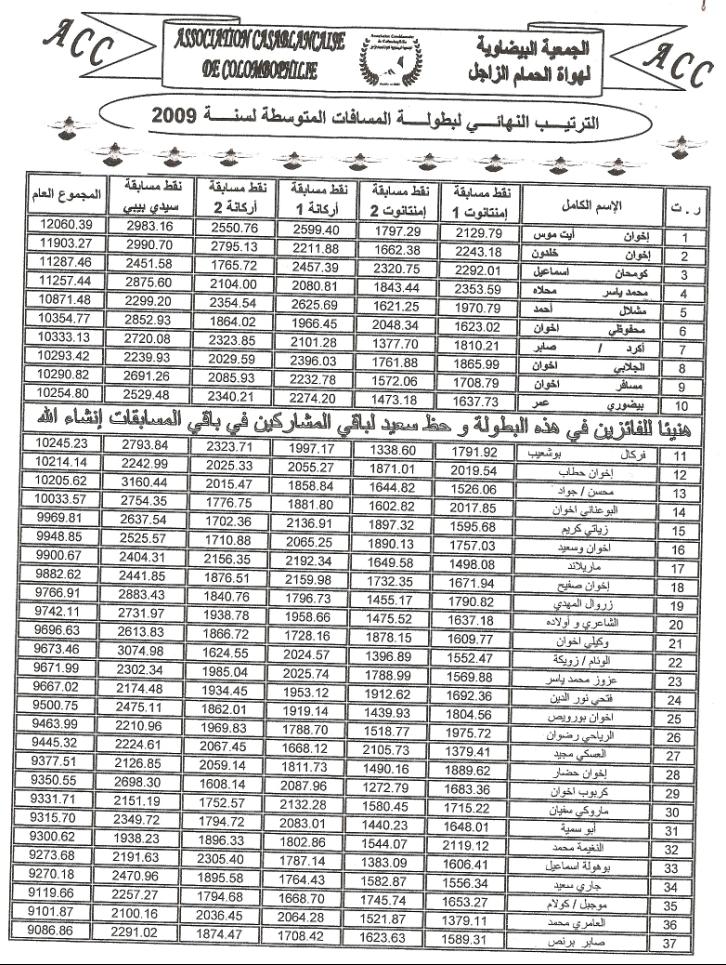 ACC
ASSOCIATION CASABLANCAISE
DE COLOMBOPHILIE
الجمعية البيضاوية
لهواة الحمام الزاجل
ACC
الترتيب النهائي لبطولة المسافات المتوسطة لسنة 2009
ر . ت | الإسم الكامل | نقط مسابقة إمنتانوت 1 | نقط مسابقة إمنتانوت 2 | نقط مسابقة أركانة 1 | نقط مسابقة أركانة 2 | نقط مسابقة سيدي بيبي | المجموع العام
1 | إخوان أيت موس | 2129.79 | 1797.29 | 2599.40 | 2550.76 | 2983.16 | 12060.39
2 | إخوان خلدون | 2243.18 | 1662.38 | 2211.88 | 2795.13 | 2990.70 | 11903.27
3 | كومحان اسماعيل | 2292.01 | 2320.75 | 2457.39 | 1765.72 | 2451.58 | 11287.46
4 | محمد ياسر محلاه | 2353.59 | 1843.44 | 2080.81 | 2104.00 | 2875.60 | 11257.44
5 | مشلال أحمد | 1970.79 | 1621.25 | 2625.69 | 2354.54 | 2299.20 | 10871.48
6 | محفوظي اخوان | 1623.02 | 2048.34 | 1966.45 | 1864.02 | 2852.93 | 10354.77
7 | أكرد / صابر | 1810.21 | 1377.70 | 2101.28 | 2323.85 | 2720.08 | 10333.13
8 | الجلابي اخوان | 1865.99 | 1761.88 | 2396.03 | 2029.59 | 2239.93 | 10293.42
9 | مسافر اخوان | 1708.79 | 1572.06 | 2232.78 | 2085.93 | 2691.26 | 10290.82
10 | بيضوري عمر | 1637.73 | 1473.18 | 2274.20 | 2340.21 | 2529.48 | 10254.80
هنيئا للفائزين في هذه البطولة و حظ سعيد لباقي المشاركين في باقي المسابقات إنشاء الله
11 | فركال بوشعيب | 1791.92 | 1338.60 | 1997.17 | 2323.71 | 2793.84 | 10245.23
12 | إخوان حطاب | 2019.54 | 1871.01 | 2055.27 | 2025.33 | 2242.99 | 10214.14
13 | محسن / جواد | 1526.06 | 1644.82 | 1858.84 | 2015.47 | 3160.44 | 10205.62
14 | البوعناني اخوان | 2017.85 | 1602.82 | 1881.80 | 1776.75 | 2754.35 | 10033.57
15 | زياتي كريم | 1595.68 | 1897.32 | 2136.91 | 1702.36 | 2637.54 | 9969.81
16 | اخوان وسعيد | 1757.03 | 1890.13 | 2065.25 | 1710.88 | 2525.57 | 9948.85
17 | ماريلاند | 1498.08 | 1649.58 | 2192.34 | 2156.35 | 2404.31 | 9900.67
18 | إخوان صفيح | 1671.94 | 1732.35 | 2159.98 | 1876.51 | 2441.85 | 9882.62
19 | زروال المهدي | 1790.82 | 1455.17 | 1796.73 | 1840.76 | 2883.43 | 9766.91
20 | الشاعري و أولاده | 1637.18 | 1475.52 | 1958.66 | 1938.78 | 2731.97 | 9742.11
21 | وكيلي اخوان | 1609.77 | 1878.15 | 1728.16 | 1866.72 | 2613.83 | 9696.63
22 | الوئام / زويكة | 1552.47 | 1396.89 | 2024.57 | 1624.55 | 3074.98 | 9673.46
23 | عزوز محمد ياسر | 1569.88 | 1788.99 | 2025.74 | 1985.04 | 2302.34 | 9671.99
24 | فتحي نور الدين | 1692.36 | 1912.62 | 1953.12 | 1934.45 | 2174.48 | 9667.02
25 | اخوان بورويص | 1804.56 | 1439.93 | 1919.14 | 1862.01 | 2475.11 | 9500.75
26 | الرياحي رضوان | 1975.72 | 1518.77 | 1788.70 | 1969.83 | 2210.96 | 9463.99
27 | العسكي مجيد | 1379.41 | 2105.73 | 1668.12 | 2067.45 | 2224.61 | 9445.32
28 | إخوان حضار | 1889.62 | 1490.16 | 1811.73 | 2059.14 | 2126.85 | 9377.51
29 | كربوب اخوان | 1683.36 | 1272.79 | 2087.96 | 1608.14 | 2698.30 | 9350.55
30 | ماروكي سفيان | 1715.22 | 1580.45 | 2132.28 | 1752.57 | 2151.19 | 9331.71
31 | أبو سمية | 1648.01 | 1440.23 | 2083.01 | 1794.72 | 2349.72 | 9315.70
32 | النغيمة محمد | 2119.12 | 1544.07 | 1802.86 | 1896.33 | 1938.23 | 9300.62
33 | بوهولة اسماعيل | 1606.41 | 1383.09 | 1787.14 | 2305.40 | 2191.63 | 9273.68
34 | جاري سعيد | 1556.34 | 1582.87 | 1764.43 | 1895.58 | 2470.96 | 9270.18
35 | موجبل / كولام | 1653.27 | 1745.74 | 1668.70 | 1794.68 | 2257.27 | 9119.66
36 | العامري محمد | 1379.11 | 1521.87 | 2064.28 | 2036.45 | 2100.16 | 9101.87
37 | صابر برنص | 1589.31 | 1623.63 | 1708.42 | 1874.47 | 2291.02 | 9086.86